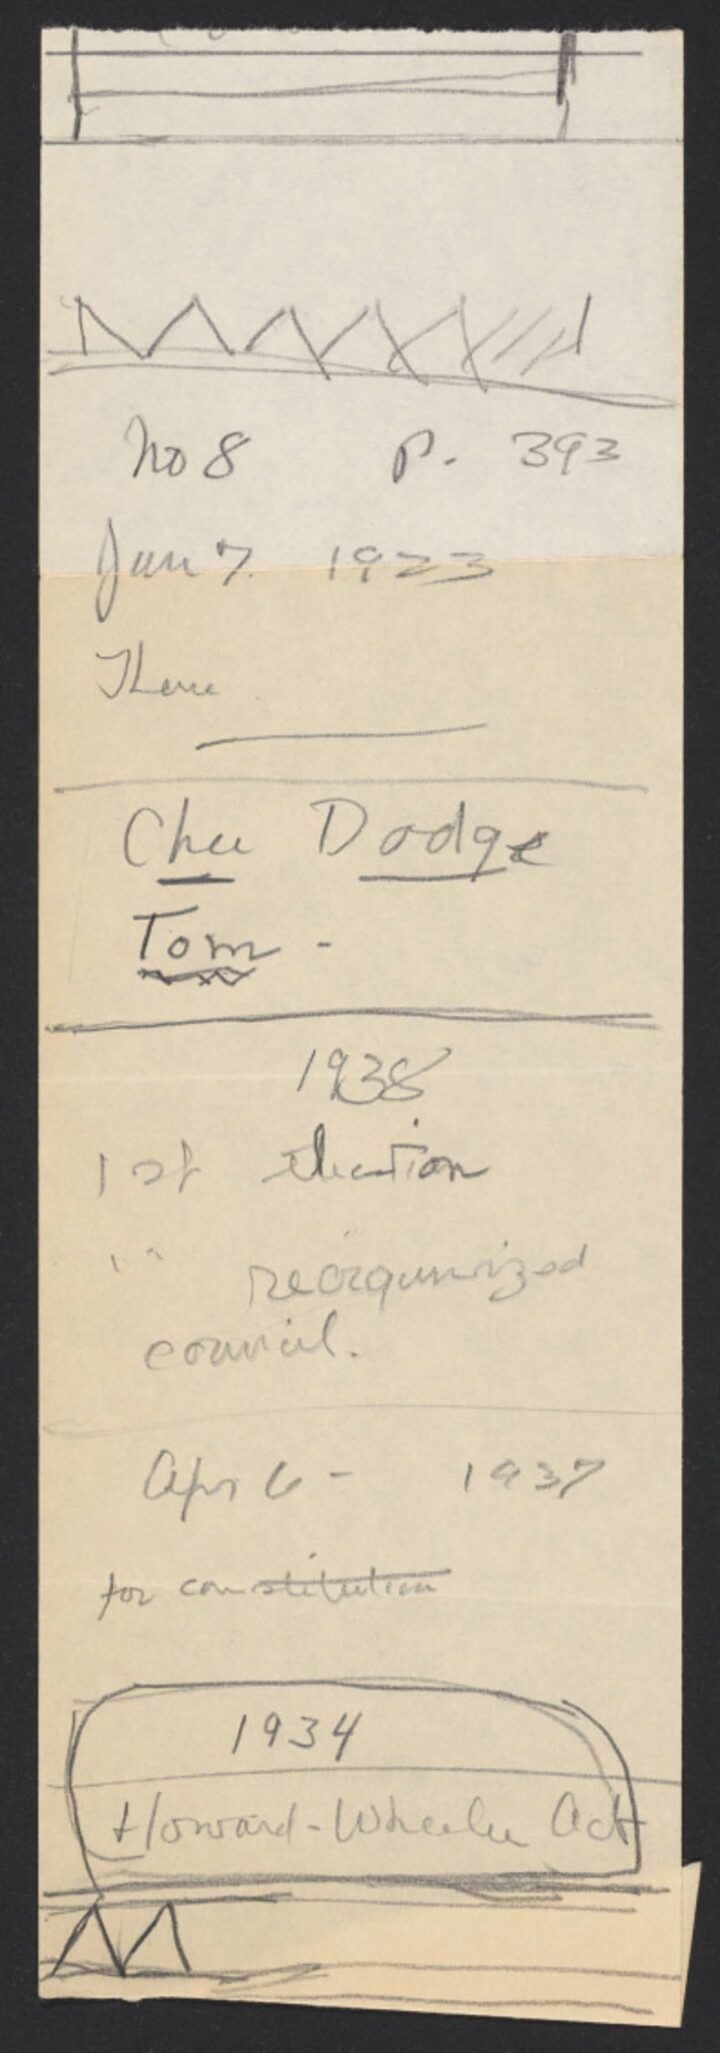 No 8 p. 393
Jan 7. 1923
There
Chee Dodge
Tom -
1938
1st election
" reorgunized
council.
Apr 6 - 1937
for constitution
1934
Howard-Wheeler Act